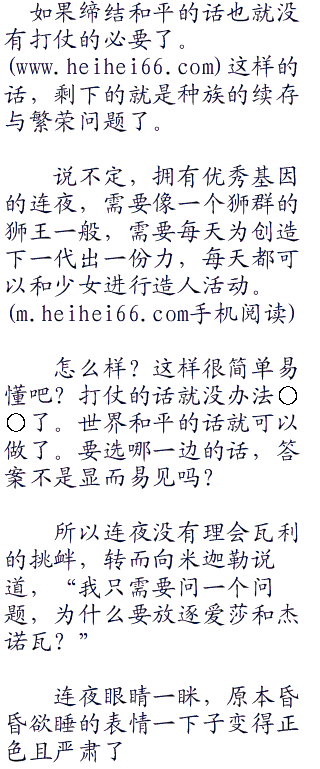 如果缔结和平的话也就没
有打仗的必要了。
(www.heihei66.com)这样的
话，剩下的就是种族的续存
与繁荣问题了。
说不定，拥有优秀基因
的连夜，需要像一个狮群的
狮王一般，需要每天为创造
下一代出一份力，每天都可
以和少女进行造人活动。
(m.heihei66.com手机阅读)
怎么样？这样很简单易
懂吧？打仗的话就没办法○
○了。世界和平的话就可以
做了。要选哪一边的话，答
案不是显而易见吗？
所以连夜没有理会瓦利
的挑衅，转而向米迦勒说
道，“我只需要问一个问
题，为什么要放逐爱莎和杰
诺瓦？”
连夜眼睛一眯，原本昏
昏欲睡的表情一下子变得正
色且严肃了